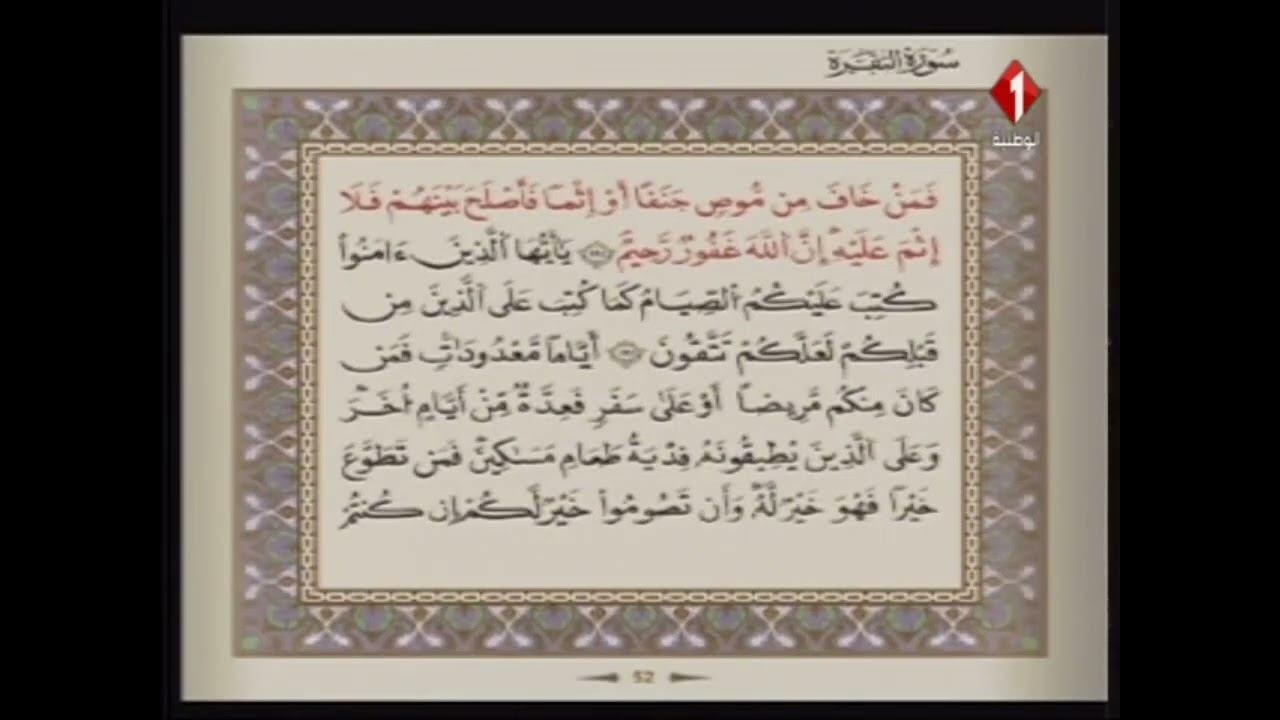 سُورَةُ البَقَرَةِ
1
الوطنية
فَمَنْ خَافَ مِن مُّوصٍ جَنَفًا أَوْ إِثْمًا فَأَصْلَحَ بَيْنَهُمْ فَلَا
إِثْمَ عَلَيْهِ إِنَّ اَللَّهَ غَفُورٌ رَّحِيمٌ يَٰأَيُّهَا اَلَّذِينَ ءَامَنُواْ
كُتِبَ عَلَيْكُمُ اُلصِّيَامُ كَمَا كُتِبَ عَلَى اَلَّذِينَ مِن
قَبْلِكُمْ لَعَلَّكُمْ تَتَّقُونَ أَيَّامًا مَّعْدُودَٰتٍ فَمَن
كَانَ مِنكُم مَّرِيضًا أَوْ عَلَىٰ سَفَرٍ فَعِدَّةٌ مِّنْ أَيَّامٍ اُخَرَ
وَعَلَى اَلَّذِينَ يُطِيقُونَهُۥ فِدْيَةُ طَعَامِ مَسَٰكِينَ فَمَن تَطَوَّعَ
خَيْرًا فَهُوَ خَيْرٌ لَّهُۥ وَأَن تَصُومُواْ خَيْرٌ لَّكُمْ إِن كُنتُمْ
52